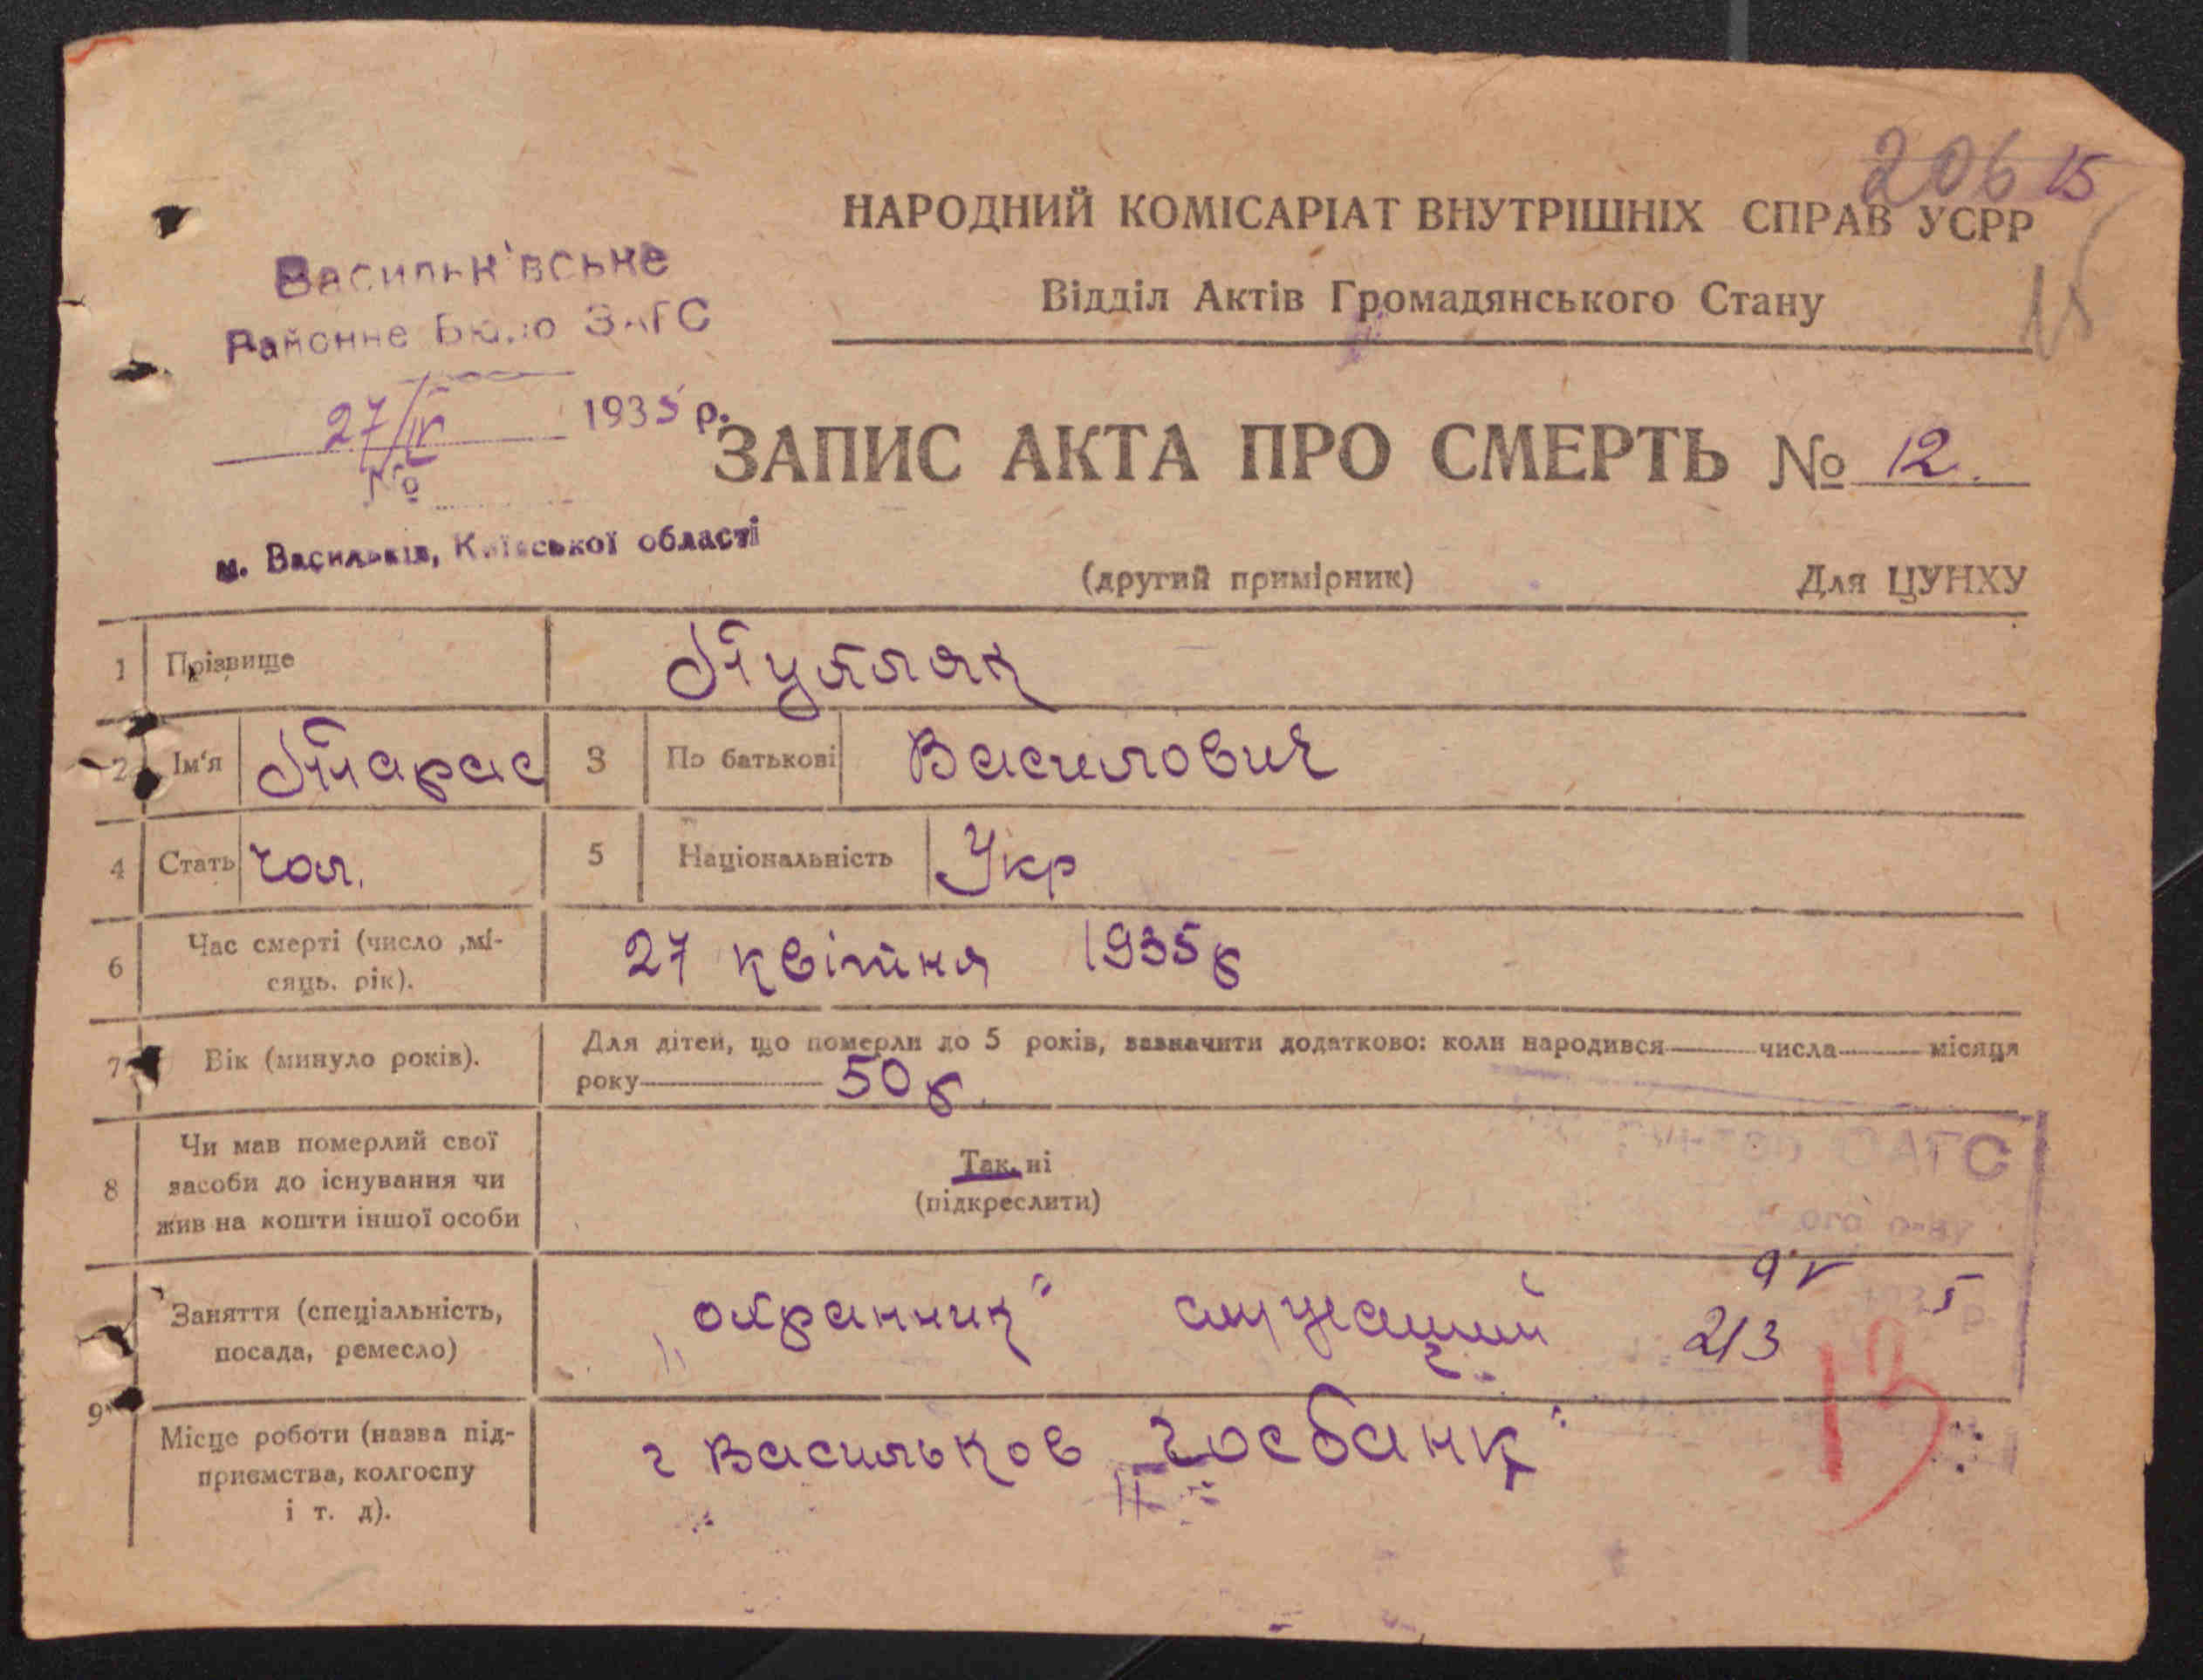 206 15
НАРОДНИЙ КОМІСАРІАТ ВНУТРІШНІХ СПРАВ УСРР
Відділ Актів Громадянського Стану
15
Васильк'вське
Районне Бюро ЗАГС
27/IV 1935 р.
№
м. Васильків, Київської області
ЗАПИС АКТА ПРО СМЕРТЬ № 12.
(другий примірник) Для ЦУНХУ
1 Прізвище
2 Ім'я Тарас 3 По батькові Василович
4 Стать чол. 5 Національність Укр
6 Час смерті (число ,мі-
сяць. рік).
27 квітня 1935 р
7 Вік (минуло років).
Для дітей, що померли до 5 років, зазначити додатково: коли народився числа місяця
року 50 р.
8 Чи мав померлий свої
засоби до існування чи
жив на кошти іншої особи
Так, ні
(підкреслити)
ЗАГС
9 Заняття (спеціальність,
посада, ремесло)
„охранник" служащий 213
13
Місце роботи (назва під-
приємства, колгоспу
і т. д).
г Васильков „Госбанк"